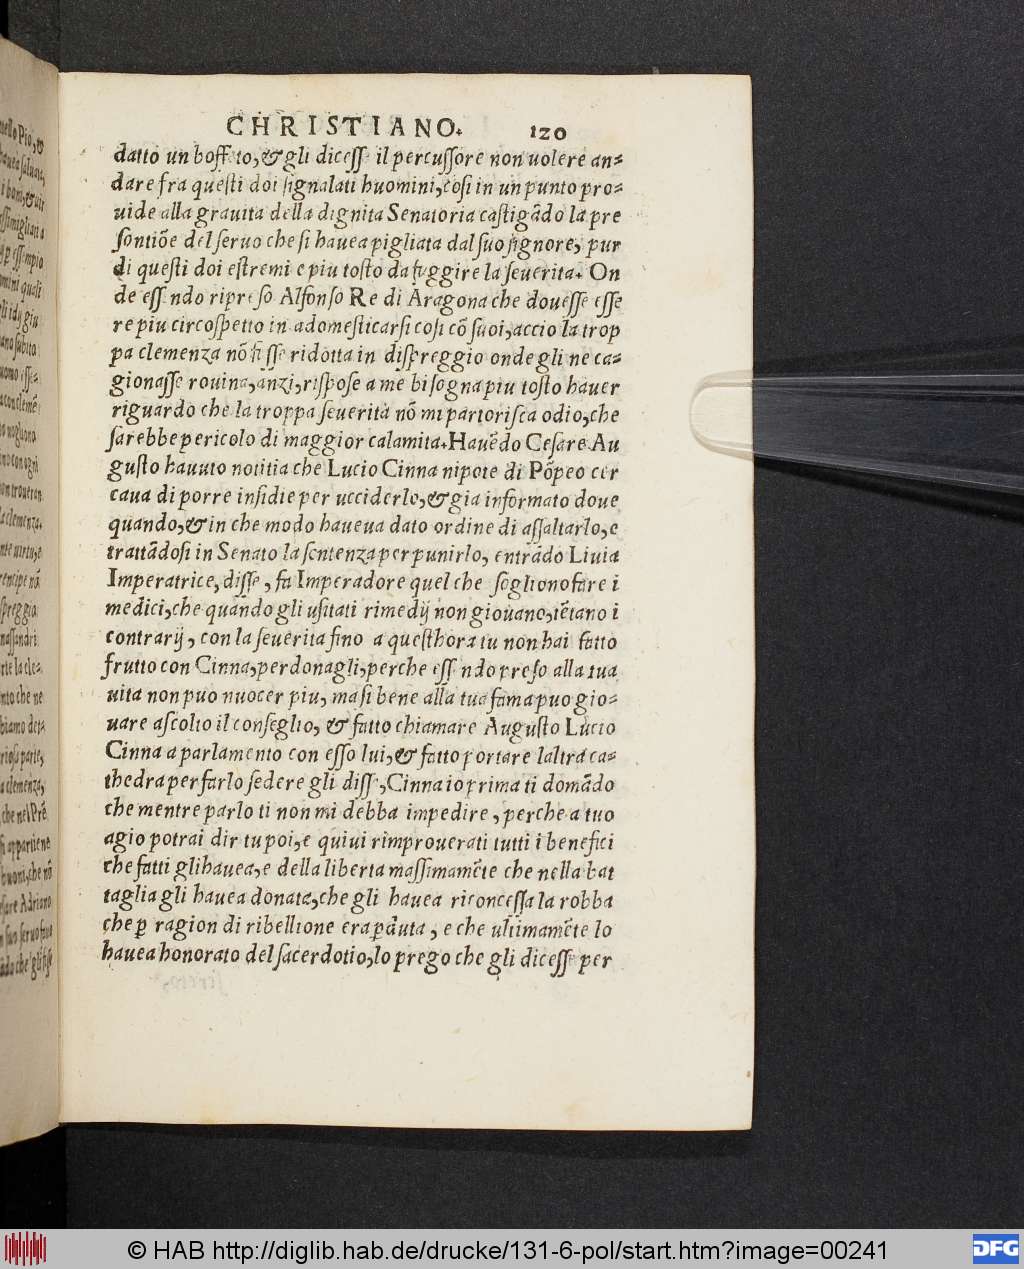 CHRISTIANO. 120
datto un boffeto, & gli dicesse il percussore non uolere an=
dare fra questi doi signalati huomini, cosi in un punto pro=
uide alla grauita della dignita Senatoria castigãdo la pre
sontiõe del seruo che si hauea pigliata dal suo signore, pur
di questi doi estremi e piu tosto da fuggire la seuerita. On
de essendo ripreso Alfonso Re di Aragona che douesse esse
re piu circospetto in adomesticarsi cosi cõ suoi, accio la trop
pa clemenza nõ fusse ridotta in dispreggio onde gli ne ca=
gionasse rouina, anzi, rispose a me bisogna piu tosto hauer
riguardo che la troppa seuerita nõ mi partorisca odio, che
sarebbe pericolo di maggior calamita. Hauẽdo Cesare Au
gusto hauuto notitia che Lucio Cinna nipote di Põpeo cer
caua di porre insidie per ucciderlo, & gia informato doue
quando, & in che modo haueua dato ordine di assaltarlo, e
trattãdosi in Senato la sentenza per punirlo, entrãdo Liuia
Imperatrice, disse, fa Imperadore quel che sogliono fare i
medici, che quando gli usitati rimedij non giouano, tẽtano i
contrarij, con la seuerita fino a questhora tu non hai fatto
frutto con Cinna, perdonagli, perche essendo preso alla tua
uita non puo nuocer piu, ma si bene alla tua fama puo gio=
uare ascolto il conseglio, & fatto chiamare Augusto Lucio
Cinna a parlamento con esso lui, & fatto portare laltra ca=
thedra per farlo sedere gli disse, Cinna io prima ti domãdo
che mentre parlo ti non mi debba impedire, perche a tuo
agio potrai dir tu poi, e quiui rimprouerati tutti i benefici
che fatti gli hauea, e della liberta massimamẽte che nella bat
taglia gli hauea donata, che gli hauea riconcessa la robba
che ꝑ ragion di ribellione era ꝑduta, e che ultimamẽte lo
hauea honorato del sacerdotio, lo prego che gli dicesse per
© HAB http://diglib.hab.de/drucke/131-6-pol/start.htm?image=00241
DFG